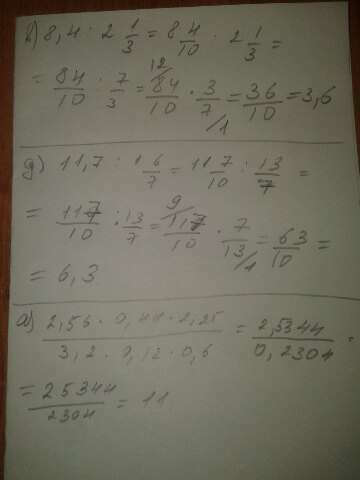 8,4 : 2 1/3 = 8 4/10 : 2 1/3 =
= 84/10 : 7/3 = 84/10 · 3/7 = 36/10 = 3,6
12
1
g) 11,7 : 1 6/7 = 11 7/10 : 13/7 =
= 117/10 : 13/7 = 117/10 · 7/13 = 63/10 =
9
1
= 6,3
a) 2,56 · 0,44 · 2,25 / 3,2 · 0,12 · 0,6 = 2,5344 / 0,2304 =
= 25344/2304 = 11